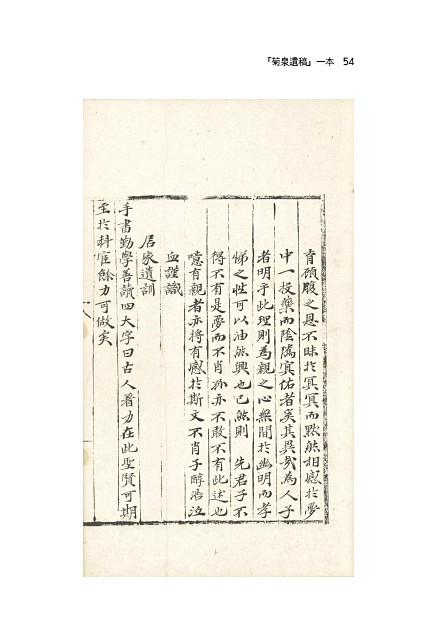 『菊泉遺稿』一本 54
育顧腹之恩不昧於冥冥而默然相感於夢
中一投藥而陰隲冥佑者矣其異哉為人子
者明乎此理則為親之心無間於幽明而孝
悌之性可以油然興也已然則 先君子不
得不有是夢而不肖孤亦不敢不有此述也
噫有親者亦將有感於斯文不肖子醇浩泣
血謹識
居家遺訓
手書勤學善讀四大字曰古人着力在此聖賢可期
至於科宦餘力可做矣